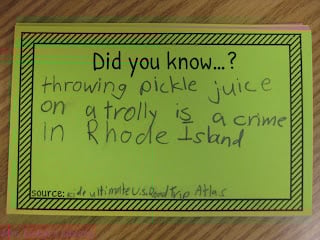 Did you know...?
throwing pickle juice
on a trolly is a crime
In Rhode Island
source: ultimate U.S. Road Trip Atlas